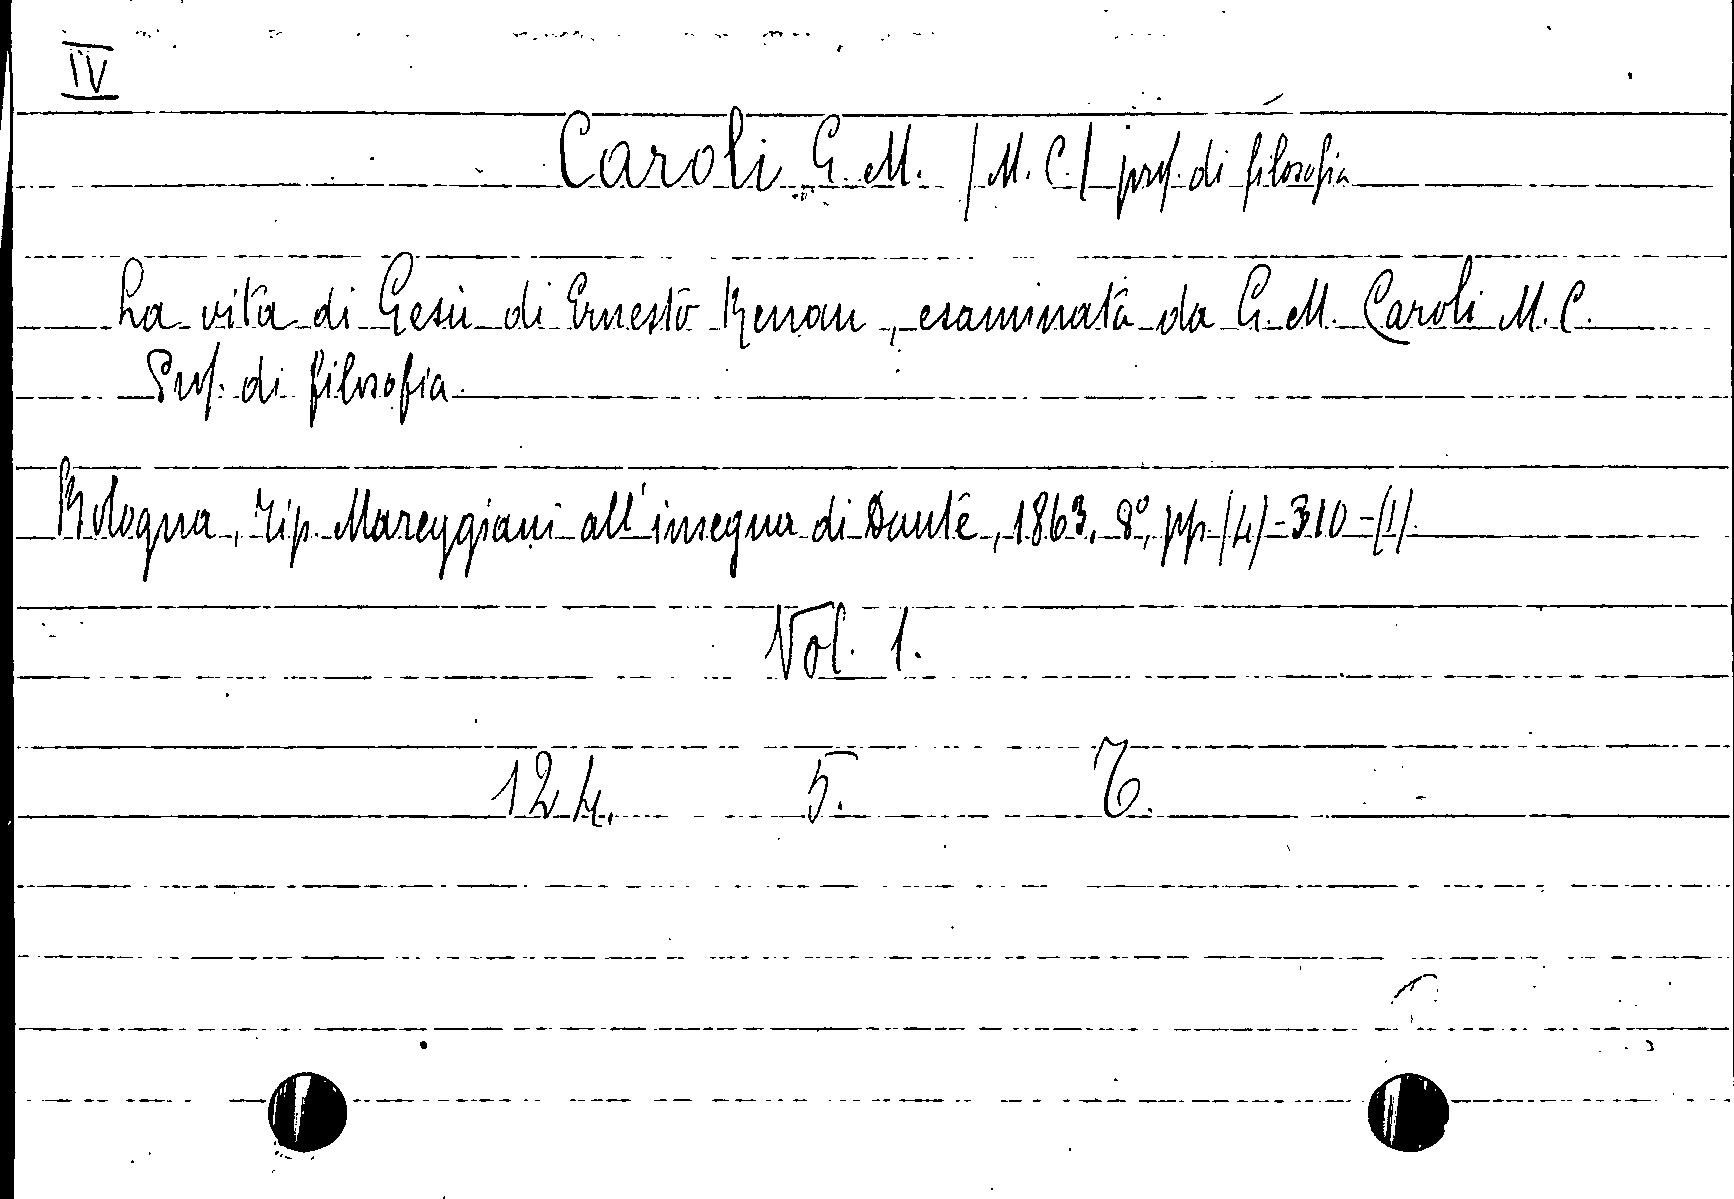 IV
Caroli G. M. /M. C./ prof. di filosofia
La vita di Gesù di Ernesto Renan, esaminata da G. M. Caroli M. C.
Prof. di filosofia.
Bologna, Tip. Mareggiani all'insegna di Dante, 1863, 8°, pp. /4/-310-/1/.
Vol. 1.
12.4. 5. 7.